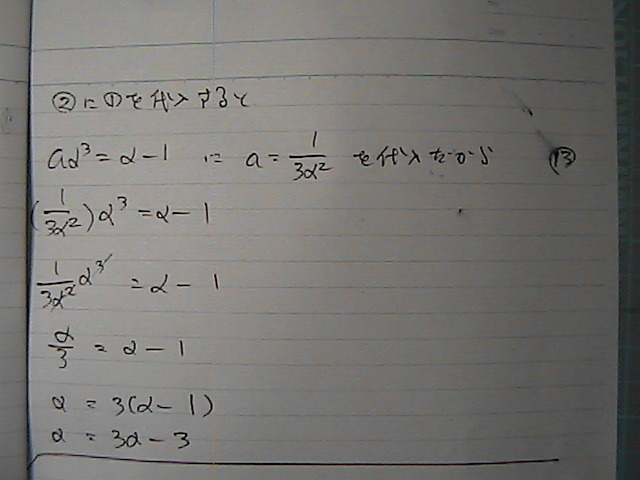 ②に①を代入すると
aα³ = α - 1 に a = 1/3α² を代入だから ⑬
(1/3α²)α³ = α - 1
1/3α² α³ = α - 1
α/3 = α - 1
α = 3(α - 1)
α = 3α - 3